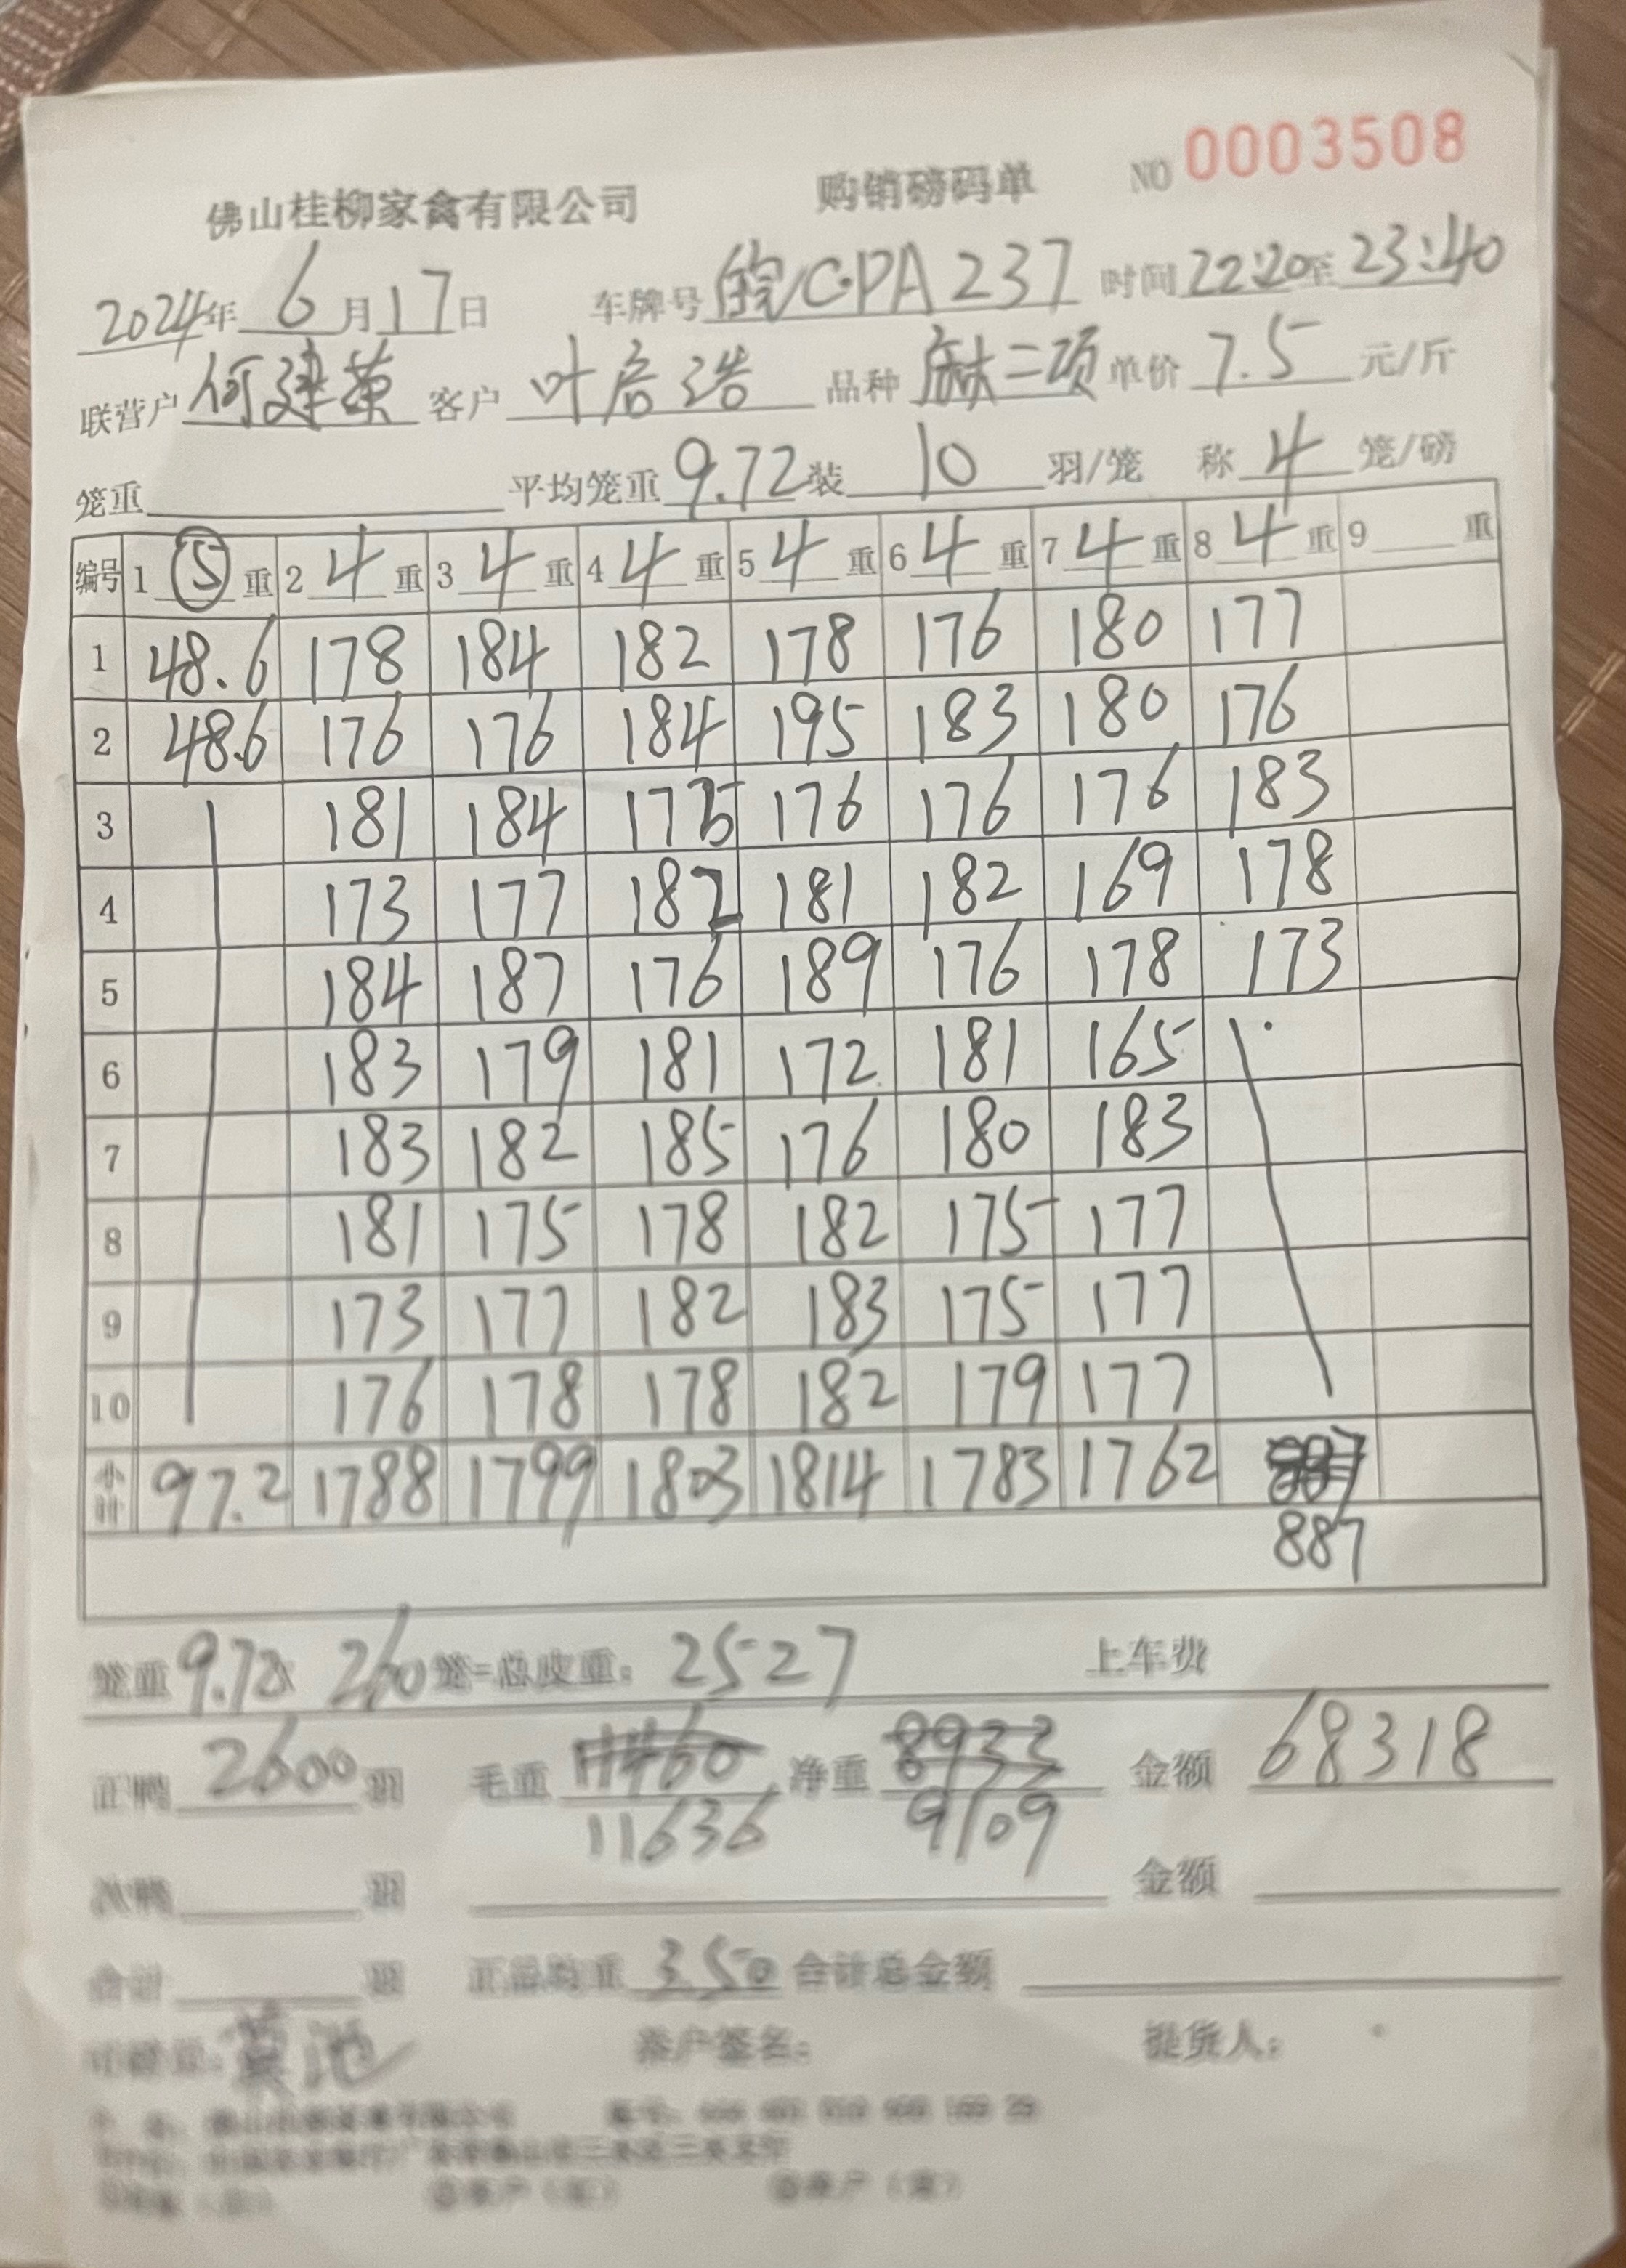 佛山桂柳家禽有限公司 购销磅码单 NO 0003508
2024年 6 月 17 日 车牌号 皖C·PA237 时间 22:20 至 23:40
联营户 何建 客户 叶启浩 品种 麻二项 单价 7.5 元/斤
笼重 平均笼重 9.72 装 10 羽/笼 称 4 笼/磅
编号 1 5 重 2 4 重 3 4 重 4 4 重 5 4 重 6 4 重 7 4 重 8 4 重 9 重
1 48.6 178 184 182 178 176 180 177
2 48.6 176 176 184 195 183 180 176
3 181 184 175 176 176 176 183
4 173 177 182 181 182 169 178
5 184 187 176 189 176 178 173
6 183 179 181 172 181 165
7 183 182 185 176 180 183
8 181 175 178 182 175 177
9 173 177 182 183 175 177
10 176 178 178 182 179 177
小计 97.2 1788 1799 1803 1814 1783 1762
887
笼重 9.72x 260 笼=总皮重: 2527 上车费
正鸭 2600 羽 毛重 11460 净重 8933 金额 68318
11636 9109
次鸭 羽 金额
合计 羽 正品均重 3.50 合计总金额
客户签名: 提货人: